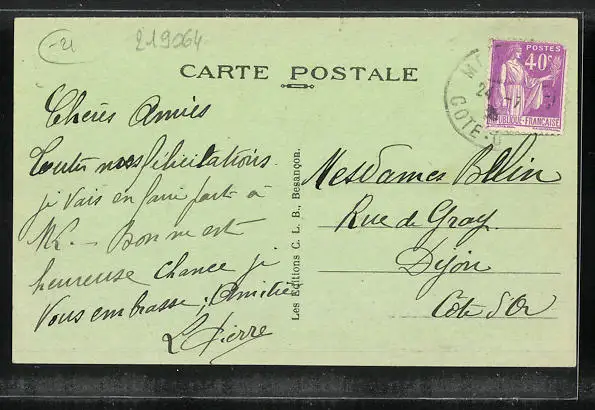 -21
219064
CARTE POSTALE
POSTES
40c
REPUBLIQUE-FRANÇAISE
COTE-D
Chères Amies
Toutes nos félicitations
je vais en faire part à
M. - Bonne est
heureuse chance je
vous embrasse, Amitiés
L Pierre
Les Editions C. L. B., Besançon.
Mesdames Bollin
Rue de Gray
Dijon
Cote d'Or